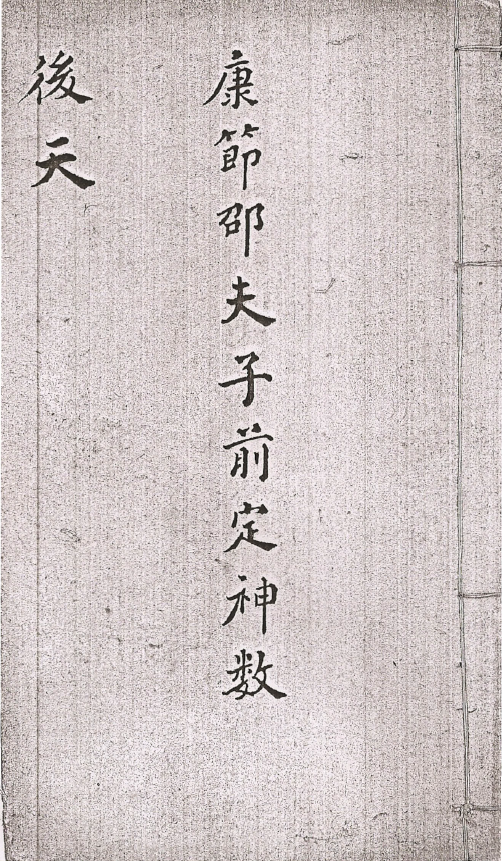 康節邵夫子前定神数
後天